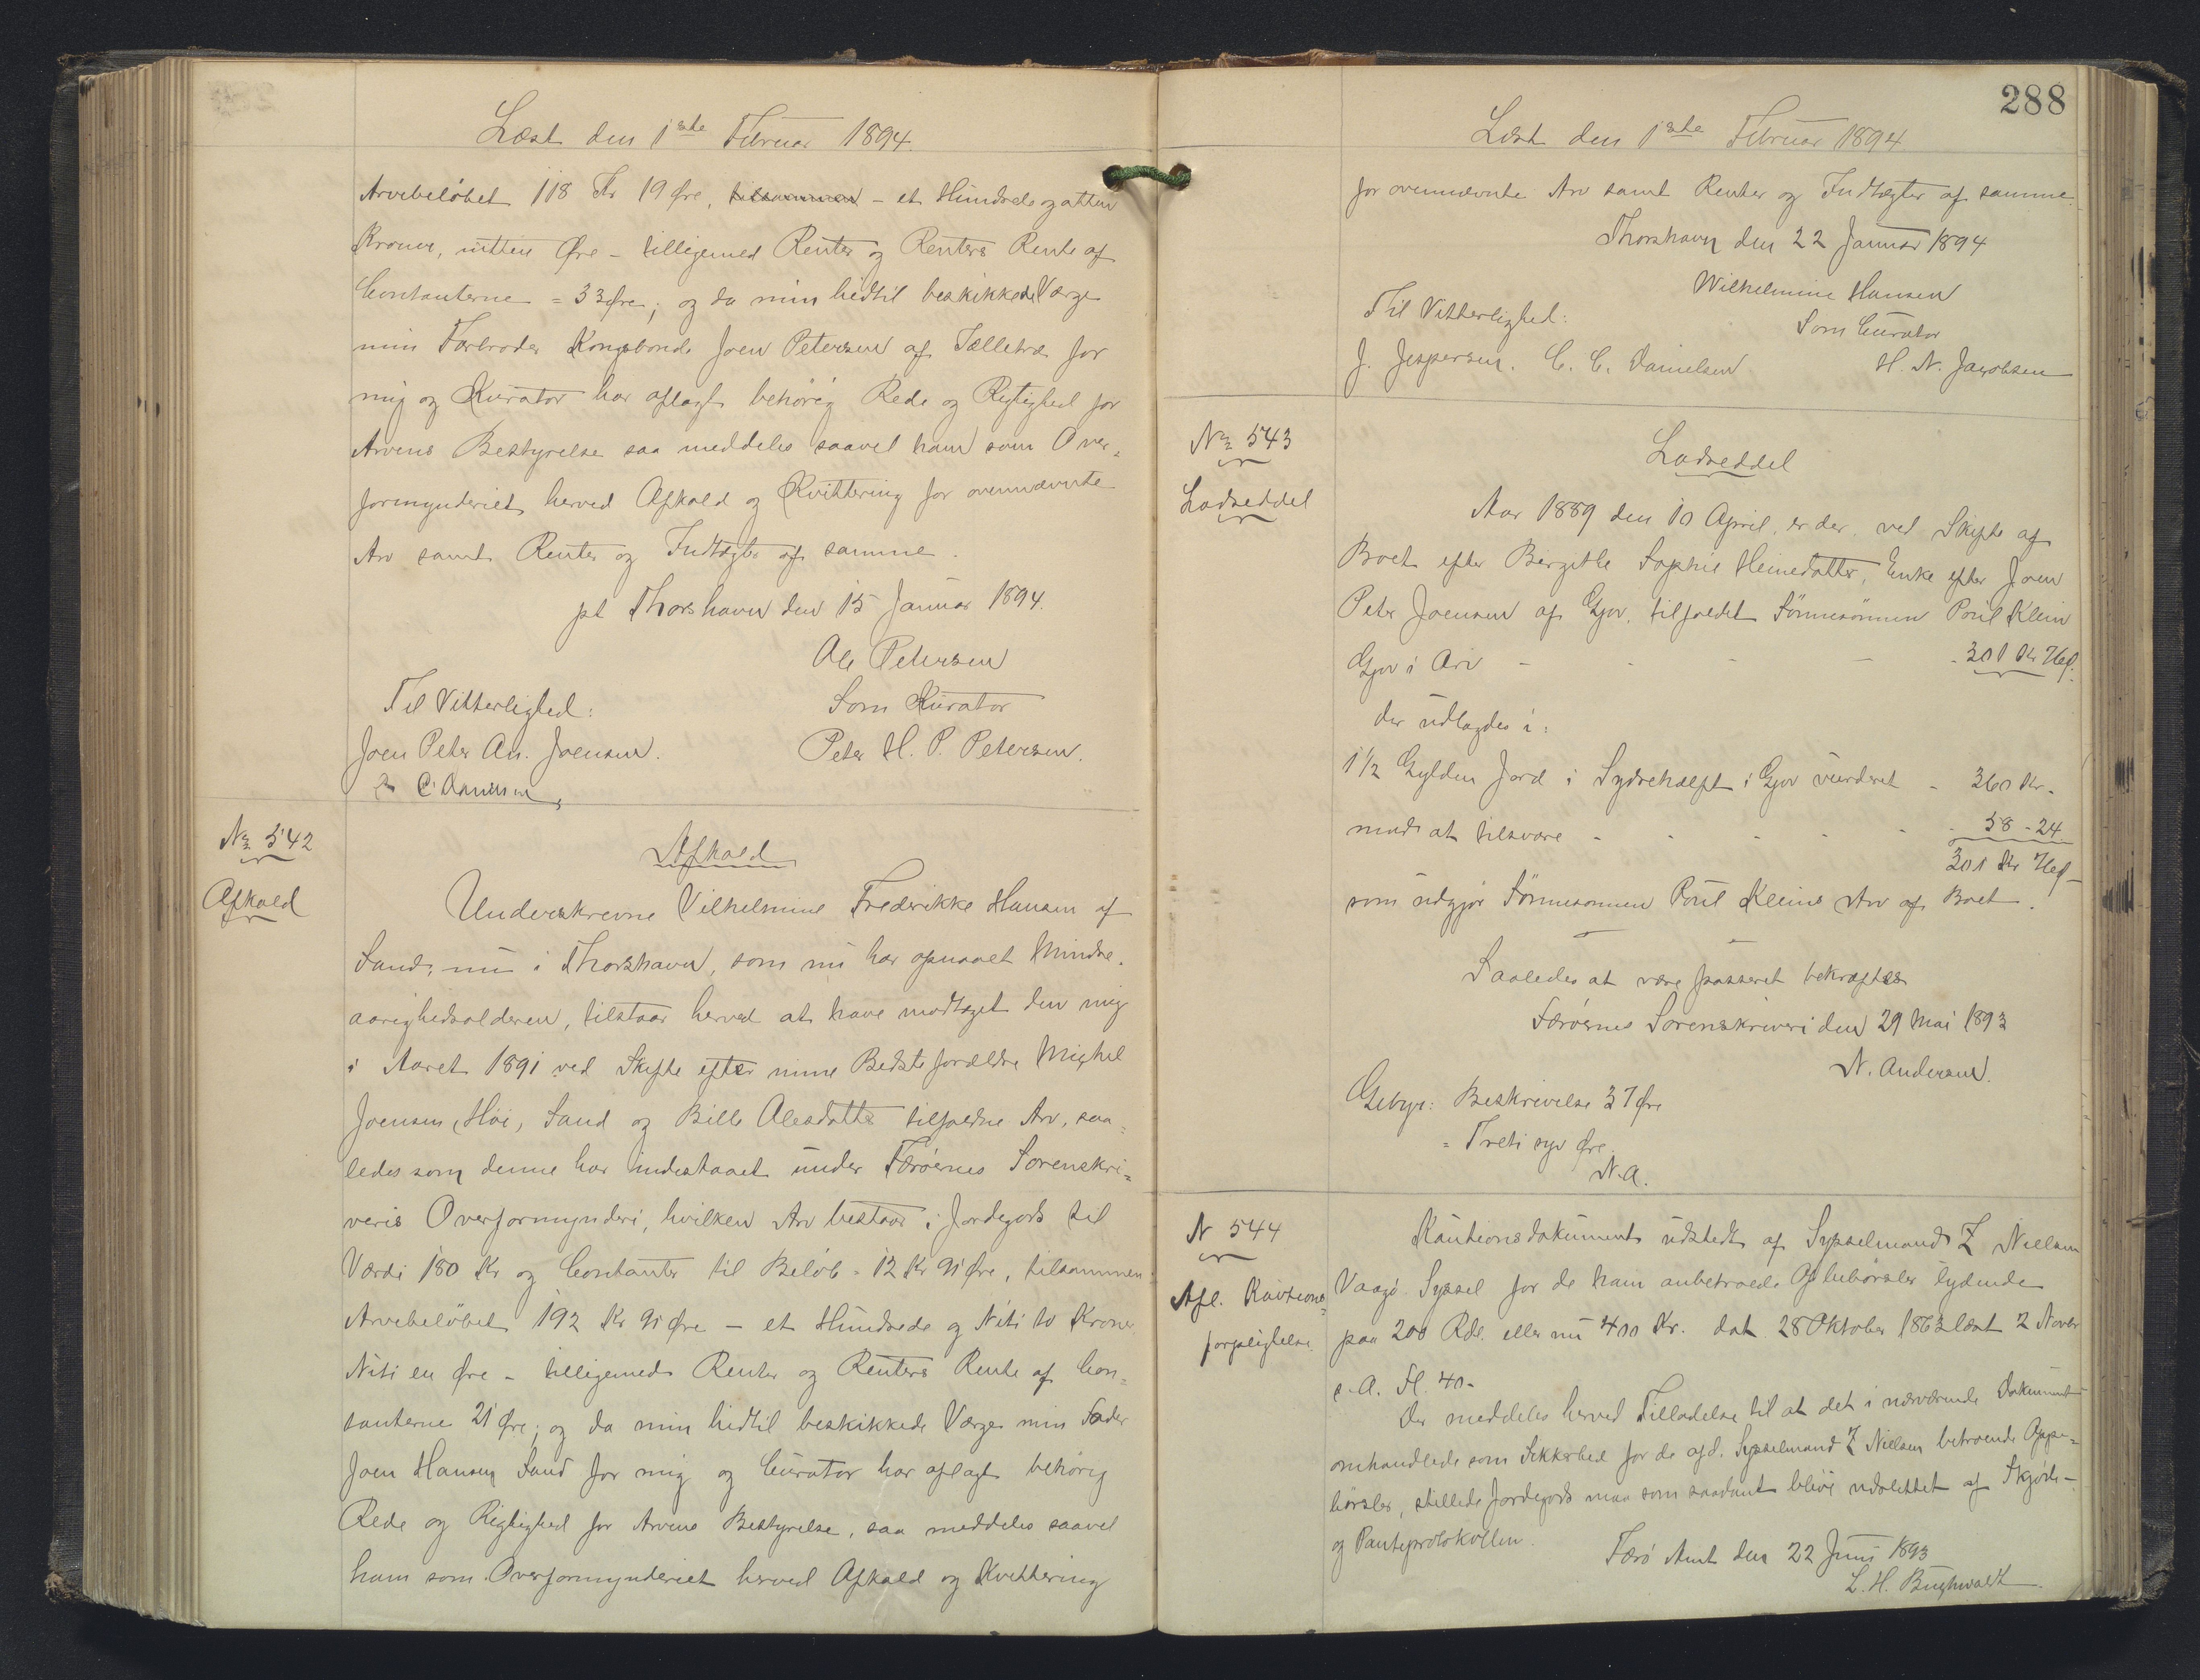 Læst den 1ste Februar 1894.
Arvebeløbet 118 Kr 19 Øre, tilsammen – et Hundrede og atten
Kroner, nitten Øre – tilligemed Renter og Renters Rente af
Contanterne = 33 Øre; og da min hidtil beskikkede Værge
min Farbroder Kongsbonde Joen Petersen af Sælletræ for
mig og Kurator har aflagt behörig Rede og Rigtighed for
Arvens Bestyrelse saa meddeles saavel ham som Over=
formynderiet herved Afkald og Kvittering for ovennævnte
Arv samt Renter og Indtægter af samme.
pt Thorshavn den 15 Januar 1894.
Ole Petersen
Til Vitterlighed:
Som Kurator
Joen Peter An. Joensen.
Peter H. P. Petersen.
№ 542
Afkald
Afkald
Underskrevne Vilhelmine Frederikke Hansen af
Sand, nu i Thorshavn, som nu har opnaaet Mindre=
aarighedsalderen, tilstaar herved at have modtaget den mig
i Aaret 1891 ved Skifte efter mine Bedsteforældre Mighel
Joensen, Höi, Sand og Bille Olesdatter tilfaldne Arv, saa=
ledes som denne har indestaaet under Færöernes Sorenskri=
veris Overformynderi, hvilken Arv bestaar i Jordegods til
Værdi 180 Kr og Contanter til Beløb = 12 Kr 91 Øre, tilsammen
Arvebeløbet 192 Kr 91 Øre – et Hundrede og Niti to Kroner
Niti en Øre – tilligemed Renter og Renters Rente af Con=
tanterne 21 Øre; og da min hidtil beskikkede Værge min Fader
Joen Hansen Sand for mig og Curator har aflagt behörig
Rede og Rigtighed for Arvens Bestyrelse, saa meddeles saavel
ham som Overformynderiet herved Afkald og Kvittering
288
Læst den 1ste Februar 1894
for ovennævnte Arv samt Renter og Indtægter af samme.
Thorshavn den 22 Januar 1894
Wilhelmine Hansen
Til Vitterlighed:
Som Curator
J. Jespersen. C. C. Danielsen
H. N. Jacobsen
№ 543
Lodseddel
Lodseddel
Aar 1889 den 10 April, er der ved Skifte af
Boet efter Bergithe Sophie Heinesdatter, Enke efter Joen
Peter Joensen af Gjov, tilfaldet Sönnesönnen Poul Klein
Gjov i Arv – – – – 301 Kr 76 Ø.
der udlagdes i:
1 1/2 Gylden Jord i Sydrehælft i Gjov vurderet – 360 Kr.
mod at tilsvare – – – – – 58 – 24
301 Kr 76 Ø –
som udgjør Sönnesönnen Poul Kleins Arv af Boet.
Saaledes at være passeret bekræftes
Færöernes Sorenskriveri den 29 Mai 1893
N. Andersen.
Gebyr: Beskrivelse 37 Øre
= Treti syv Øre.
N.A.
N 544
Afl. Kautions=
forpligtelse
Kautionsdokument udstedt af Sysselmand Z Nielsen
Vaagö Syssel for de ham anbetroede Oppebørsler lydende
paa 200 Rdl. eller nu 400 Kr. dat 28 Oktober 1863 læst 2 Novbr
s. A. Fl. 40.
Der meddeles herved Tilladelse til at det i nærværende Dokument
omhandlede som Sikkerhed for de afd. Sysselmand Z Nielsen betroende Oppe=
børsler, stillede Jordegods maa som saadant blive udslettet af Skjöde-
og Panteprotokollen.
Færö Amt den 22 Juni 1893
L. H. Buchwaldt